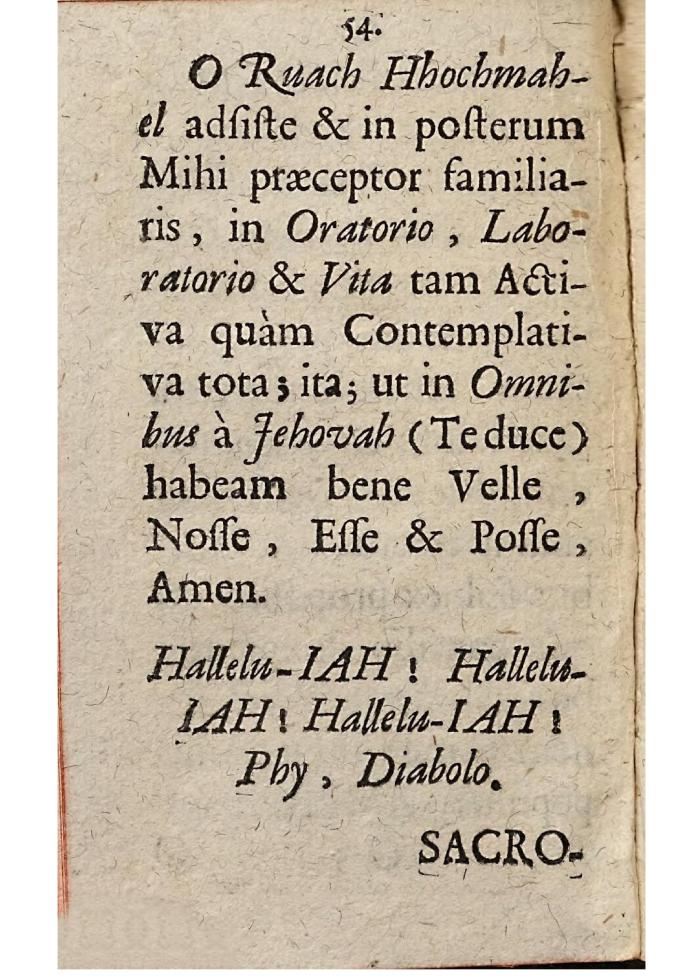 54.
O Ruach Hhochmah-
el adſiſte & in poſterum
Mihi præceptor familia-
ris, in Oratorio, Labo-
ratorio & Vita tam Acti-
va quàm Contemplati-
va tota; ita; ut in Omni-
bus à Jehovah (Te duce)
habeam bene Velle,
Noſſe, Eſſe & Poſſe,
Amen.
Hallelu-IAH! Hallelu-
IAH! Hallelu-IAH!
Phy, Diabolo.
SACRO-